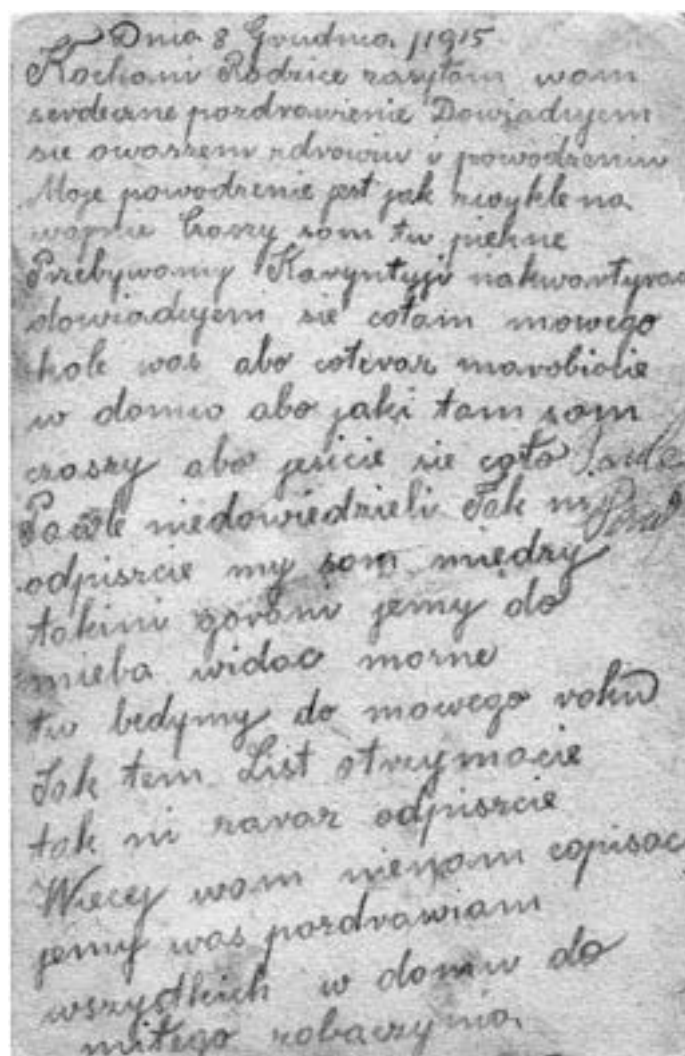 Dnia 8 Grudnia 1915
Kochani Rodzice zasyłam wam
serdeczne pozdrawienie Dowjadujem
sie owaszem zdrowiu i powodzeniu
Moje powodzenie jest jak zwykle na
wojnie Czaszy som tu piekne
Przebywamy Karyntyji nakwartyrac
dowiadujem sie cotam nowego
kole was abo coteraz marobicie
w domu abo jaki tam som
czaszy abo jesicie sie cało
Pawle niedowiedzieli Jak ni
odpiszcie my som miedzy
takimi górami jemy do
nieba widac morne
tu bedymy do nowego roku
Jak tem List otrzymacie
tak ni zaraz odpiszcie
Wiecej wam niemam copisac
jemy was pozdrawiam
wszystkich w domu do
miłego zobaczynia